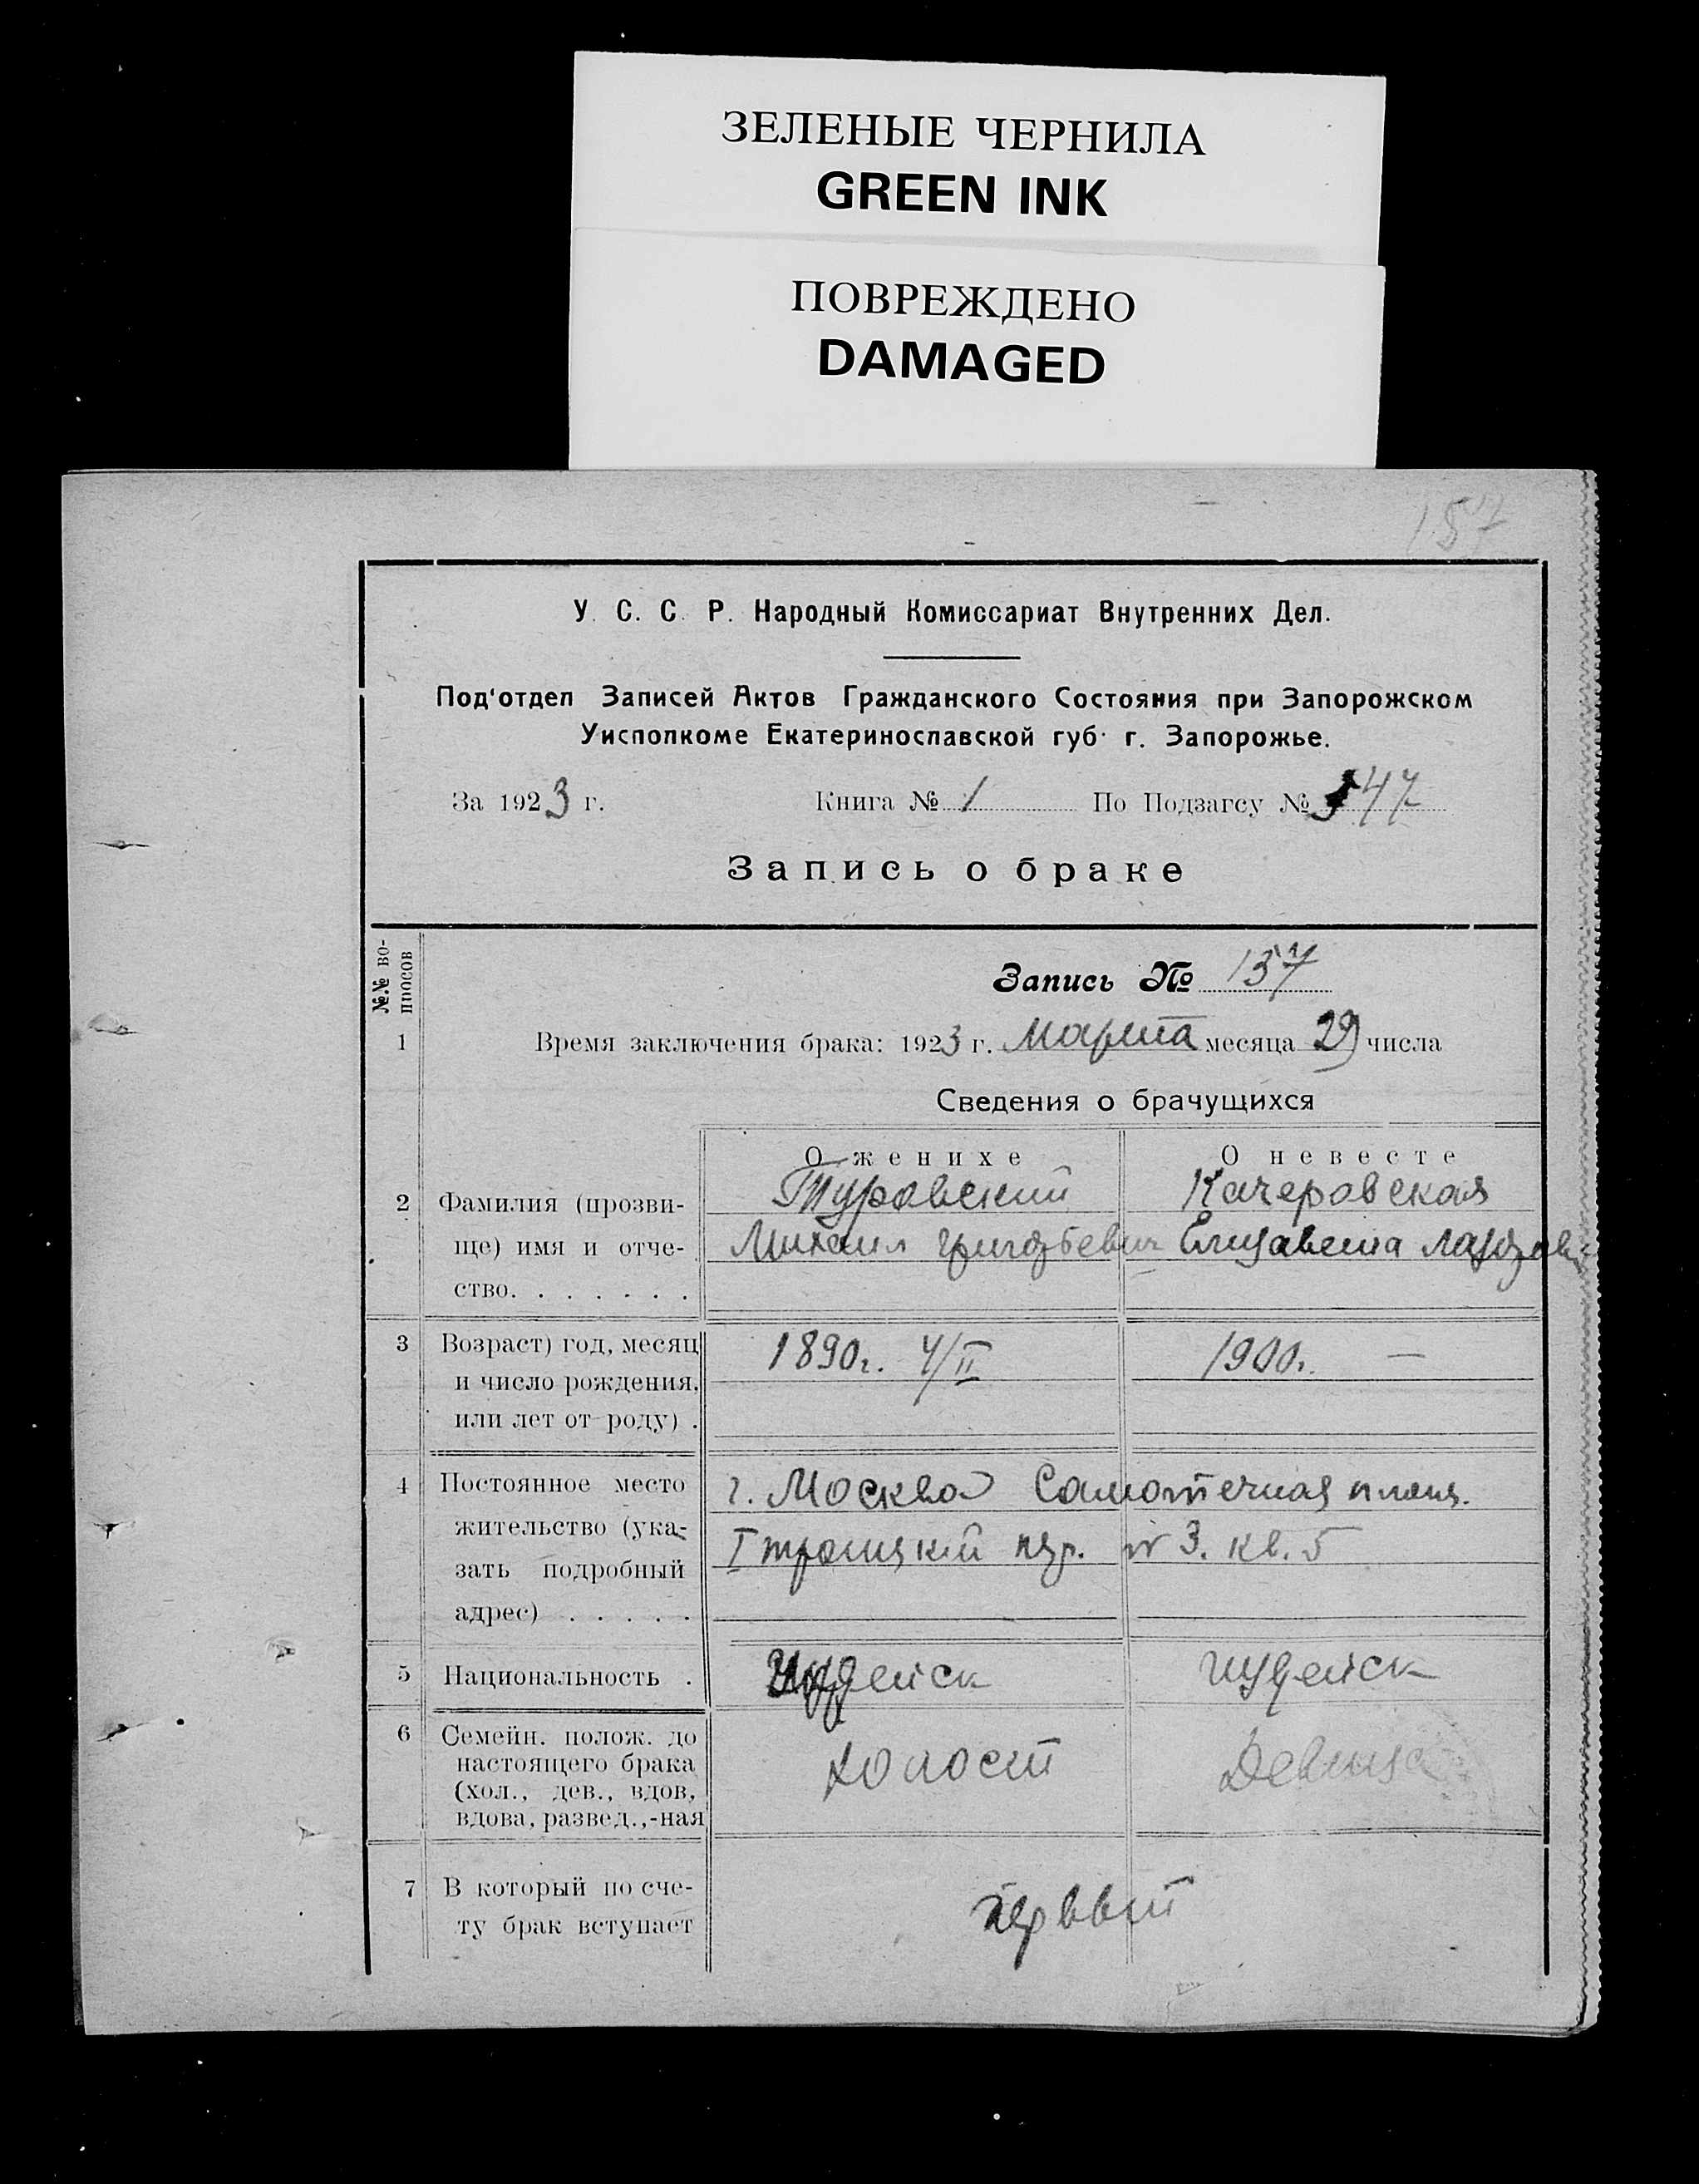 ЗЕЛЕНЫЕ ЧЕРНИЛА
GREEN INK
ПОВРЕЖДЕНО
DAMAGED
157
У. С. С. Р. Народный Комиссариат Внутренних Дел.
Под'отдел Записей Актов Гражданского Состояния при Запорожском
Уисполкоме Екатеринославской губ. г. Запорожье.
За 1923 г. Книга № 1 По Подзагсу № 47
Запись о браке
№.№ во-
просов
Запись № 157
1 Время заключения брака: 1923 г. Марта месяца 29 числа
Сведения о брачущихся
О женихе О невесте
2 Фамилия (прозви- Туровский Качеровская
ще) имя и отче- Михаил Григорьевич Елизавета
ство. . . . . . .
3 Возраст) год, месяц 1890г. 4/II 1900г. —
и число рождения,
или лет от роду) .
4 Постоянное место г. Москва Самотечная площ.
жительство (ука- I троицкий пер. № 3. кв. 5
зать подробный
адрес) . . . . .
5 Национальность . Иудейск иудейск
6 Семейн. полож. до
настоящего брака холост Девица
(хол., дев., вдов,
вдова, развед.,-ная
7 В который по сче- первый
ту брак вступает